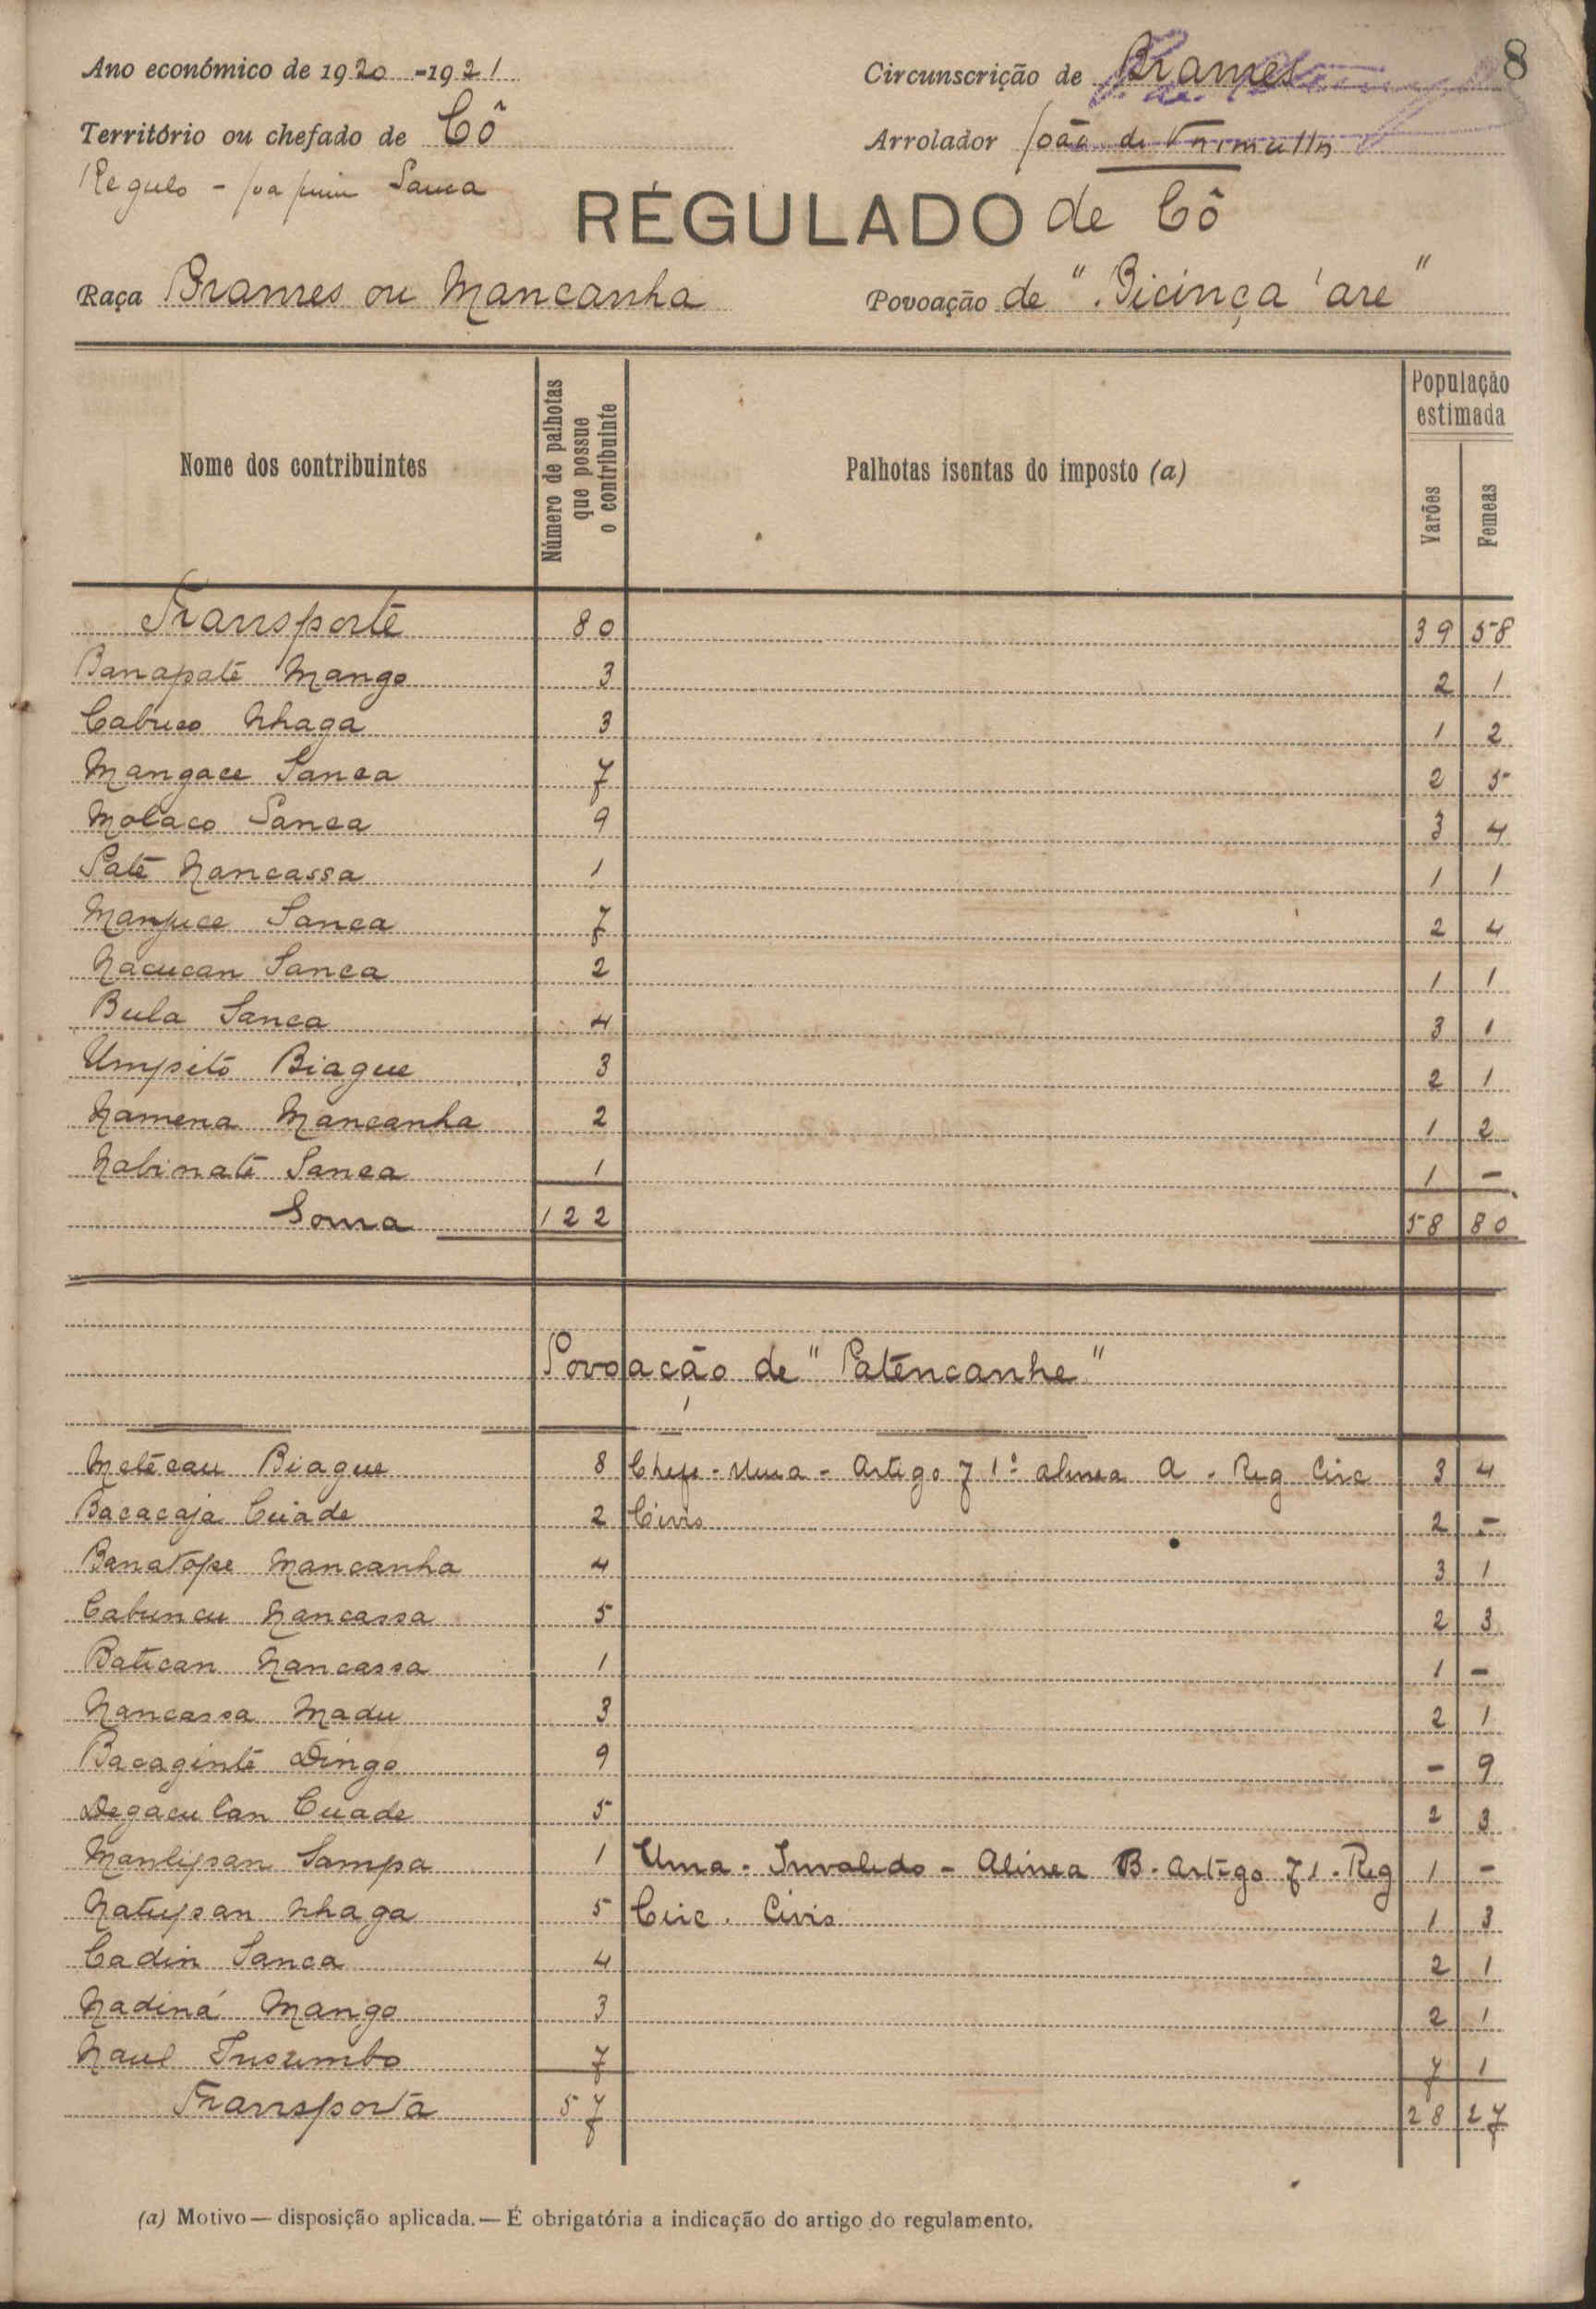 8
Ano económico de 1920-1921
Circunscrição de Brames
Território ou chefado de Cô
Arrolador João de
Regulo -
RÉGULADO de Cô
Raça Brames ou Mancanha
Povoação de "Bicinça 'are"
Nome dos contribuintes
Número de palhotas que possue o contribuinte
Palhotas isentas do imposto (a)
População estimada
Varões
Femeas
Transporte 80 39 58
Banapatê Mango 3 2 1
Cabuco Nhaga 3 1 2
Mangace Sanca 7 2 5
Molaco Sanca 9 3 4
Patê Nancassa 1 1 1
Manjuce Sanca 7 2 4
Nacucan Sanca 2 1 1
Bula Sanca 4 3 1
Umpitó Biague 3 2 1
Namena Mancanha 2 1 2
Nabinatê Sanca 1 1 -
Soma 122 58 80
Povoação de "Patêncanhe"
Metêcau Biague 8 Chefe - Uma - Artigo 71º alinea A - Reg Circ 3 4
Bacacaja Cuade 2 Civis 2 -
Banatope Mancanha 4 3 1
Cabuncu Nancassa 5 2 3
Batican Nancassa 1 1 -
Nancassa Madu 3 2 1
Bacagintê Dingo 9 - 9
Degaculan Cuade 5 2 3
Sampa 1 Uma - Invalido - Alinea B - Artigo 71 - Reg 1 -
Nhaga 5 Circ. Civis 1 3
Cadin Sanca 4 2 1
Nadiná Mango 3 2 1
Naul 7 7 1
Transporta 57 28 27
(a) Motivo — disposição aplicada. — É obrigatória a indicação do artigo do regulamento.